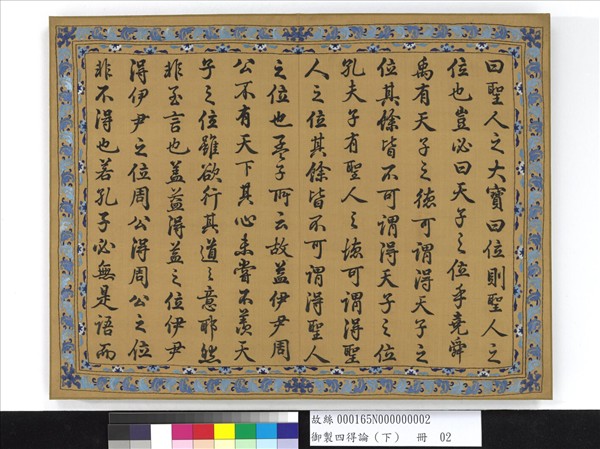 曰聖人之大寶曰位則聖人之
位也豈必曰天子之位乎堯舜
禹有天子之德可謂得天子之
位其餘皆不可謂得天子之位
孔夫子有聖人之德可謂得聖
人之位其餘皆不可謂得聖人
之位也孟子所云故益伊尹周
公不有天下其心未嘗不羨天
子之位雖欲行其道之意耶然
非至言也蓋益得益之位伊尹
得伊尹之位周公得周公之位
非不得也若孔子必無是語而
故絲 000165N000000002
御製四得論(下) 冊 02